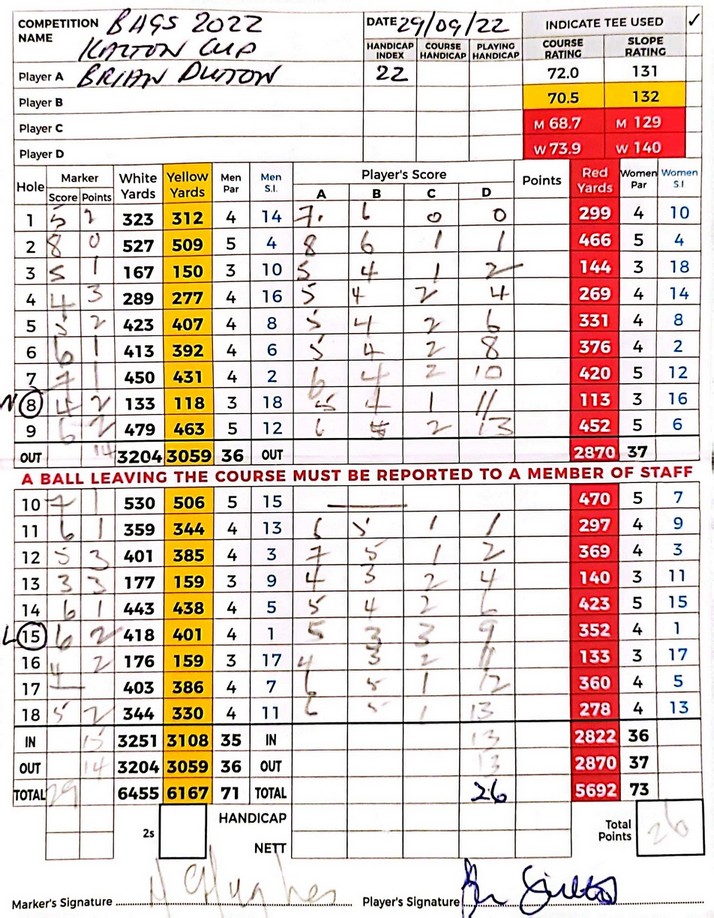 COMPETITION NAME BAGS 2022 DATE 29/09/22 INDICATE TEE USED ✓
KALTON CUP HANDICAP INDEX COURSE HANDICAP PLAYING HANDICAP COURSE RATING SLOPE RATING
Player A BRIAN DUTTON 22 72.0 131
Player B 70.5 132
Player C M 68.7 M 129
Player D W 73.9 W 140
Hole Marker White Yards Yellow Yards Men Par Men S.I. Player's Score Points Red Yards Women Par Women S.I
Score Points A B C D
1 5 2 323 312 4 14 7. 6 0 0 299 4 10
2 8 0 527 509 5 4 8 6 1 1 466 5 4
3 5 1 167 150 3 10 5 4 1 2 144 3 18
4 4 3 289 277 4 16 5 4 2 4 269 4 14
5 5 2 423 407 4 8 5 4 2 6 331 4 8
6 6 1 413 392 4 6 5 4 2 8 376 4 2
7 7 1 450 431 4 2 6 4 2 10 420 5 12
N 8 4 2 133 118 3 18 5 4 1 11 113 3 16
9 6 2 479 463 5 12 6 2 13 452 5 6
OUT 14 3204 3059 36 OUT 2870 37
A BALL LEAVING THE COURSE MUST BE REPORTED TO A MEMBER OF STAFF
10 7 1 530 506 5 15 — 470 5 7
11 6 1 359 344 4 13 6 5 1 1 297 4 9
12 5 3 401 385 4 3 7 5 1 2 369 4 3
13 3 3 177 159 3 9 4 3 2 4 140 3 11
14 6 1 443 438 4 5 5 4 2 6 423 5 15
L 15 6 2 418 401 4 1 5 3 3 9 352 4 1
16 4 2 176 159 3 17 4 3 2 11 133 3 17
17 — 403 386 4 7 6 5 1 12 360 4 5
18 5 2 344 330 4 11 6 5 1 13 278 4 13
IN 15 3251 3108 35 IN 13 2822 36
OUT 14 3204 3059 36 OUT 13 2870 37
TOTAL 29 6455 6167 71 TOTAL 26 5692 73
2s HANDICAP Total Points 26
NETT
Marker's Signature N Hughes Player's Signature